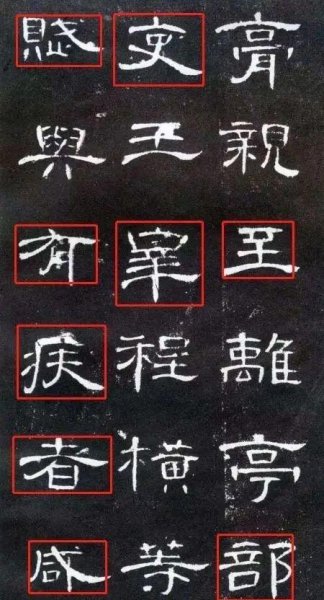 膏親至離亭部
吏王宰程横等
賦與有疾者咸